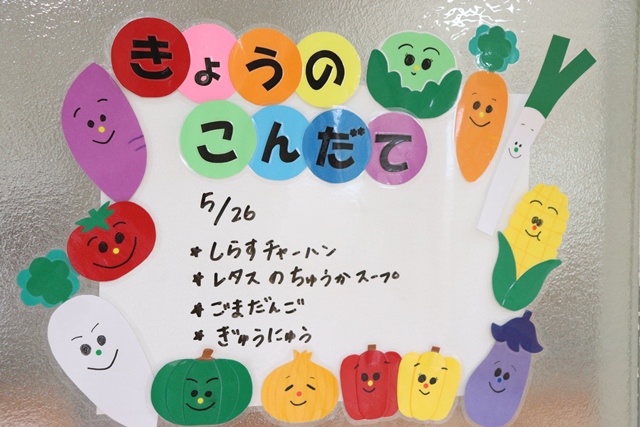 きょうの
こんだて
5/26
* しらすチャーハン
* レタスのちゅうかスープ
* ごまだんご
* ぎゅうにゅう